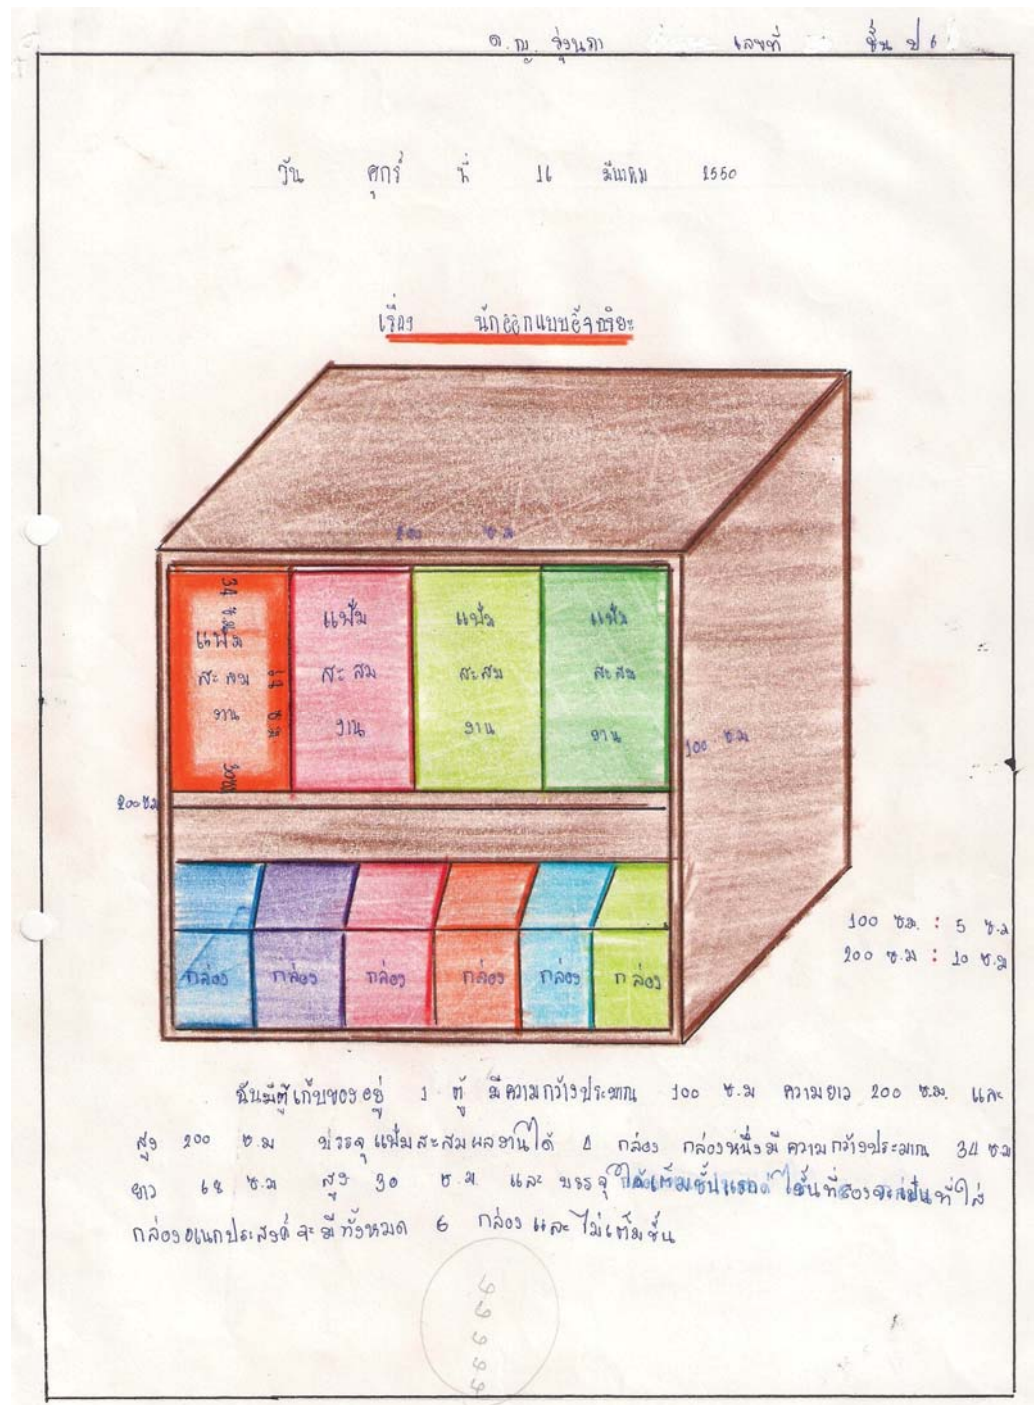 ด.ญ. รุ่งนภา เลขที่ ชั้น ป 6
วัน ศุกร์ ที่ 16 มีนาคม 2550
เรื่อง นักออกแบบอัจฉริยะ
200 ซ.ม
34 ซ.ม
แฟ้ม สะสม งาน
68 ซ.ม
30
แฟ้ม สะสม งาน
แฟ้ม สะสม งาน
แฟ้ม สะสม งาน
100 ซ.ม
200 ซ.ม
100 ซ.ม. : 5 ซ.ม
200 ซ.ม : 10 ซ.ม
กล่อง กล่อง กล่อง กล่อง กล่อง กล่อง
ฉันมีตู้เก็บของอยู่ 1 ตู้ มีความกว้างประมาณ 100 ซ.ม ความยาว 200 ซ.ม. และ
สูง 200 ซ.ม บรรจุแฟ้มสะสมผลงานได้ 4 กล่อง กล่องหนึ่งมีความกว้างประมาณ 34 ซ.ม
ยาว 68 ซ.ม สูง 30 ซ.ม. และ บรรจุได้เต็มชั้นแรก ชั้นที่สองจะเป็นที่ใส่
กล่องอเนกประสงค์จะมีทั้งหมด 6 กล่องและไม่เต็มชั้น